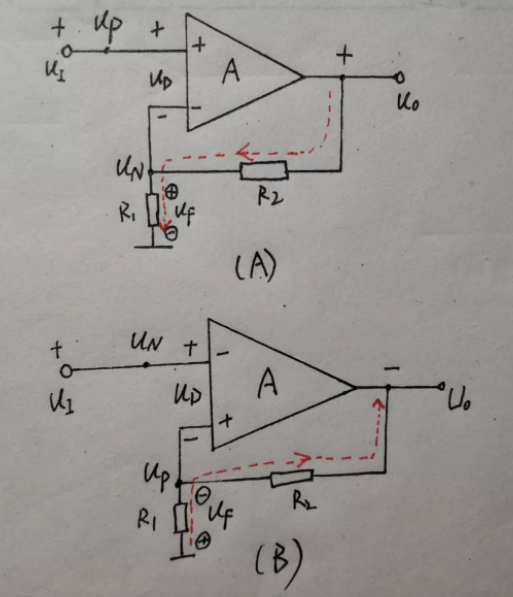 + uP +
uI + A +
uD
- - uO
uN
⊕ R2
R1 uf
⊖
(A)
+ uN + -
uI - A
uD + UO
-
uP
⊖ R2
R1 uf
⊕
(B)